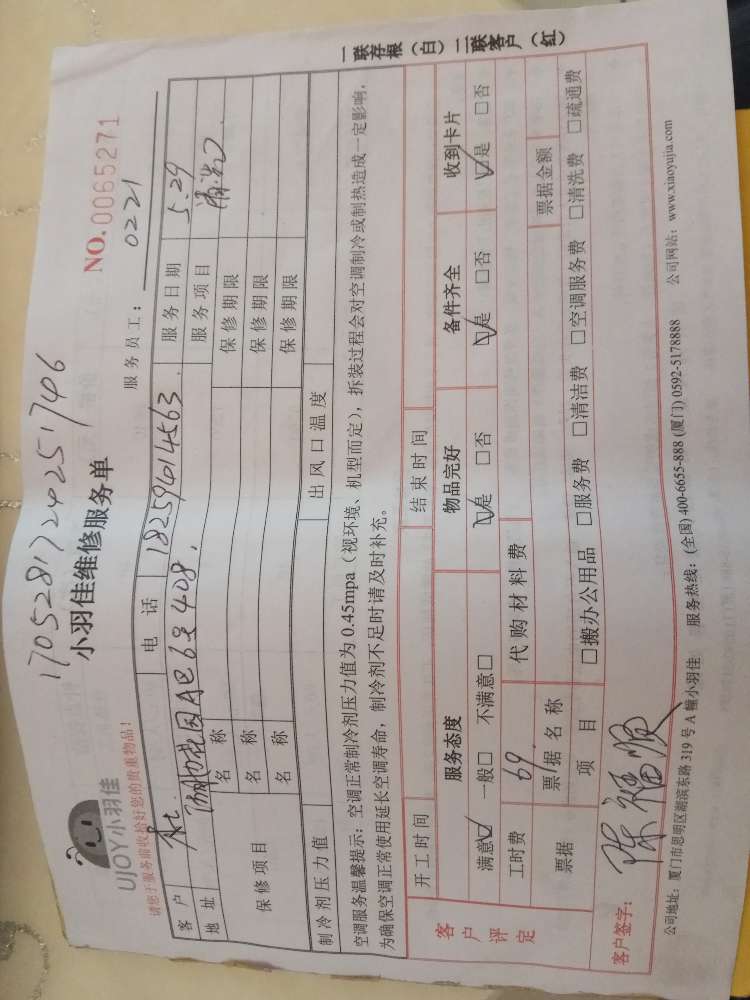 17052817242251746
UJOY小羽佳
小羽佳维修服务单
NO.0065271
请您于服务前收拾好您的贵重物品!
服务员工: 0221
客户 电话 18259414563. 服务日期 5.29
地址 花园A区63408. 服务项目
保修项目 名称 保修期限
名称 保修期限
名称 保修期限
制冷剂压力值 出风口温度
空调服务温馨提示:空调正常制冷剂压力值为0.45mpa(视环境、机型而定),拆装过程会对空调制冷或制热造成一定影响,
为确保空调正常使用延长空调寿命,制冷剂不足时请及时补充。
开工时间 结束时间
客户评定 服务态度 物品完好 备件齐全 收到卡片
满意☑ 一般□ 不满意□ ☑是 □否 ☑是 □否 ☑是 □否
工时费 69 代购材料费
票据 票/据名称 票据金额
项目 □搬办公用品 □服务费 □清洁费 □空调服务费 □清洗费 □疏通费
客户签字: 陈福顺
公司地址:厦门市思明区湖滨东路319号A幢小羽佳 服务热线:(全国)400-6655-888 (厦门)0592-5178888 公司网站:www.xiaoyujia.com
一联存根(白)二联客户(红)